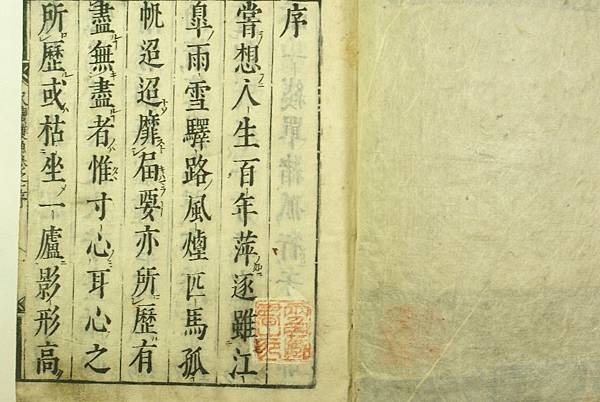 序
嘗想人生百年萍逐雖江
皐雨雪驛路風煙匹馬孤
帆迢迢靡屆要亦所歷有
盡無盡者惟寸心耳心之
所歷或枯坐一廬影形高